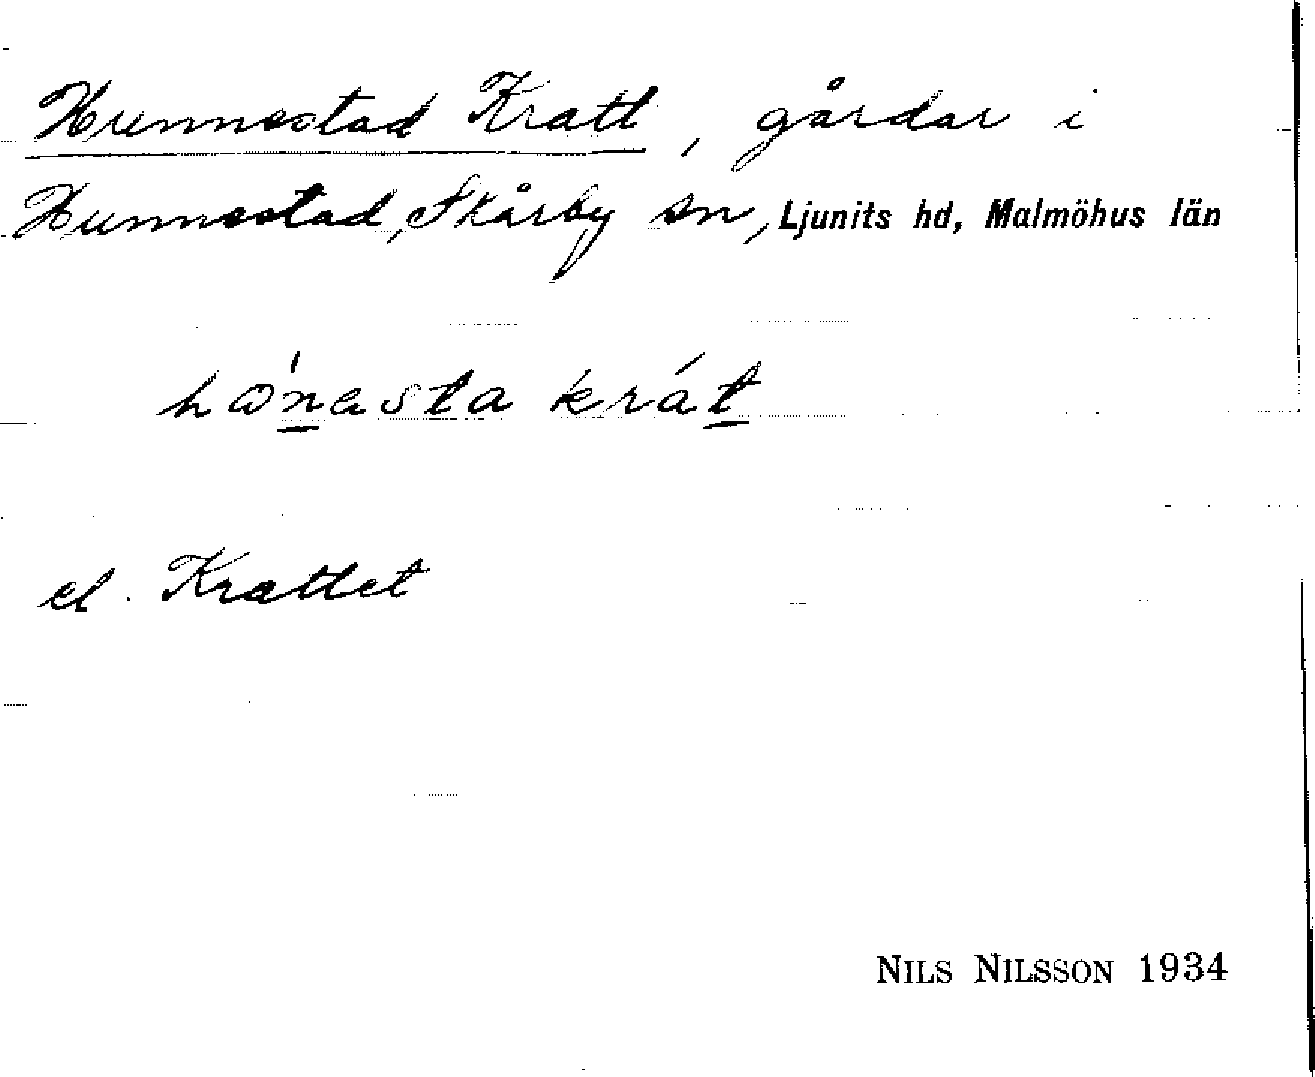 Hunnestad Kratt, gårdar i
Hunnestad, Skårby sn, Ljunits hd, Malmöhus län
krát
el. Krattet
NILS NILSSON 1934